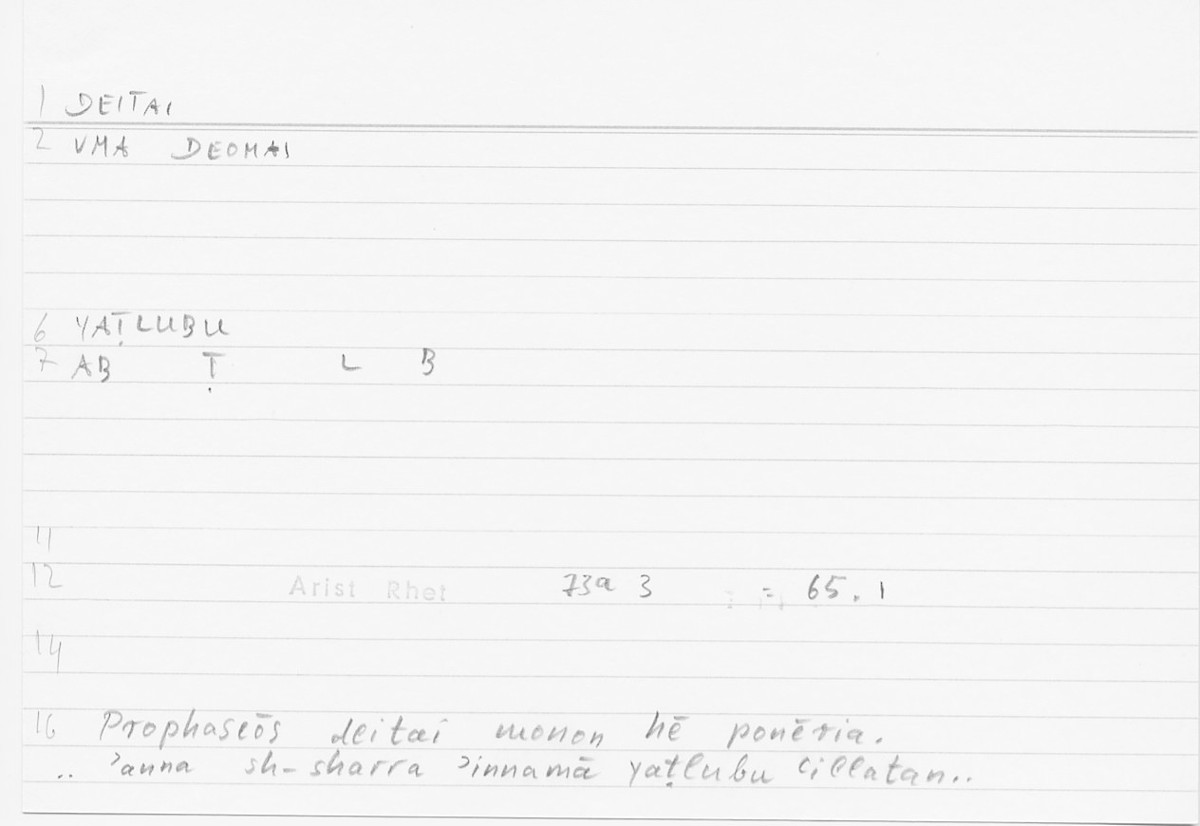 1 DEITAI
2 VMA DEOMAI
6 YAṬLUBU
7 AB Ṭ L B
11
12 Arist Rhet 73a 3 = 65.1
14
16 Prophaseōs deitai monon hē ponēria.
.. ʾanna sh-sharra ʾinnamā yaṭlubu ʿillatan..